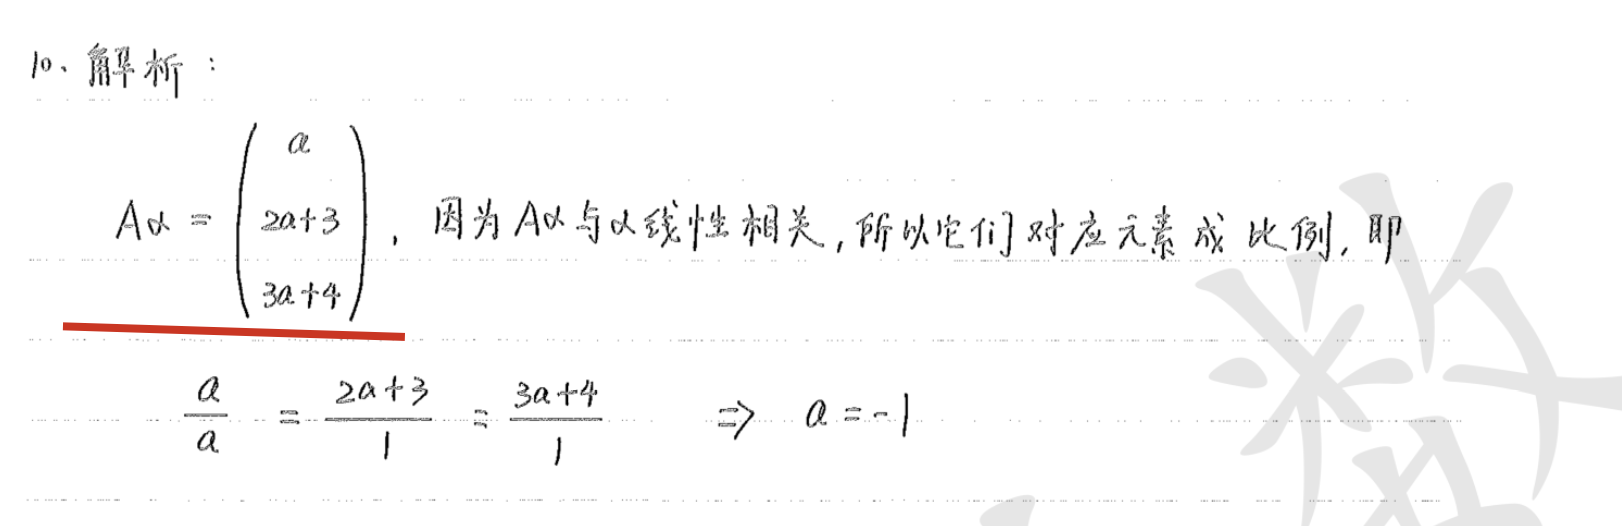 10、解析：
Aα = (a
2a+3
3a+4)，因为Aα与α线性相关，所以它们对应元素成比例，即
a/a = 2a+3/1 = 3a+4/1 ⇒ a=-1
数